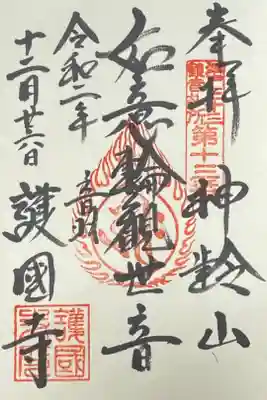 奉拝 神齢山
第十三番
如意輪観世音
音羽
令和二年
十二月廿六日 護國寺
護國